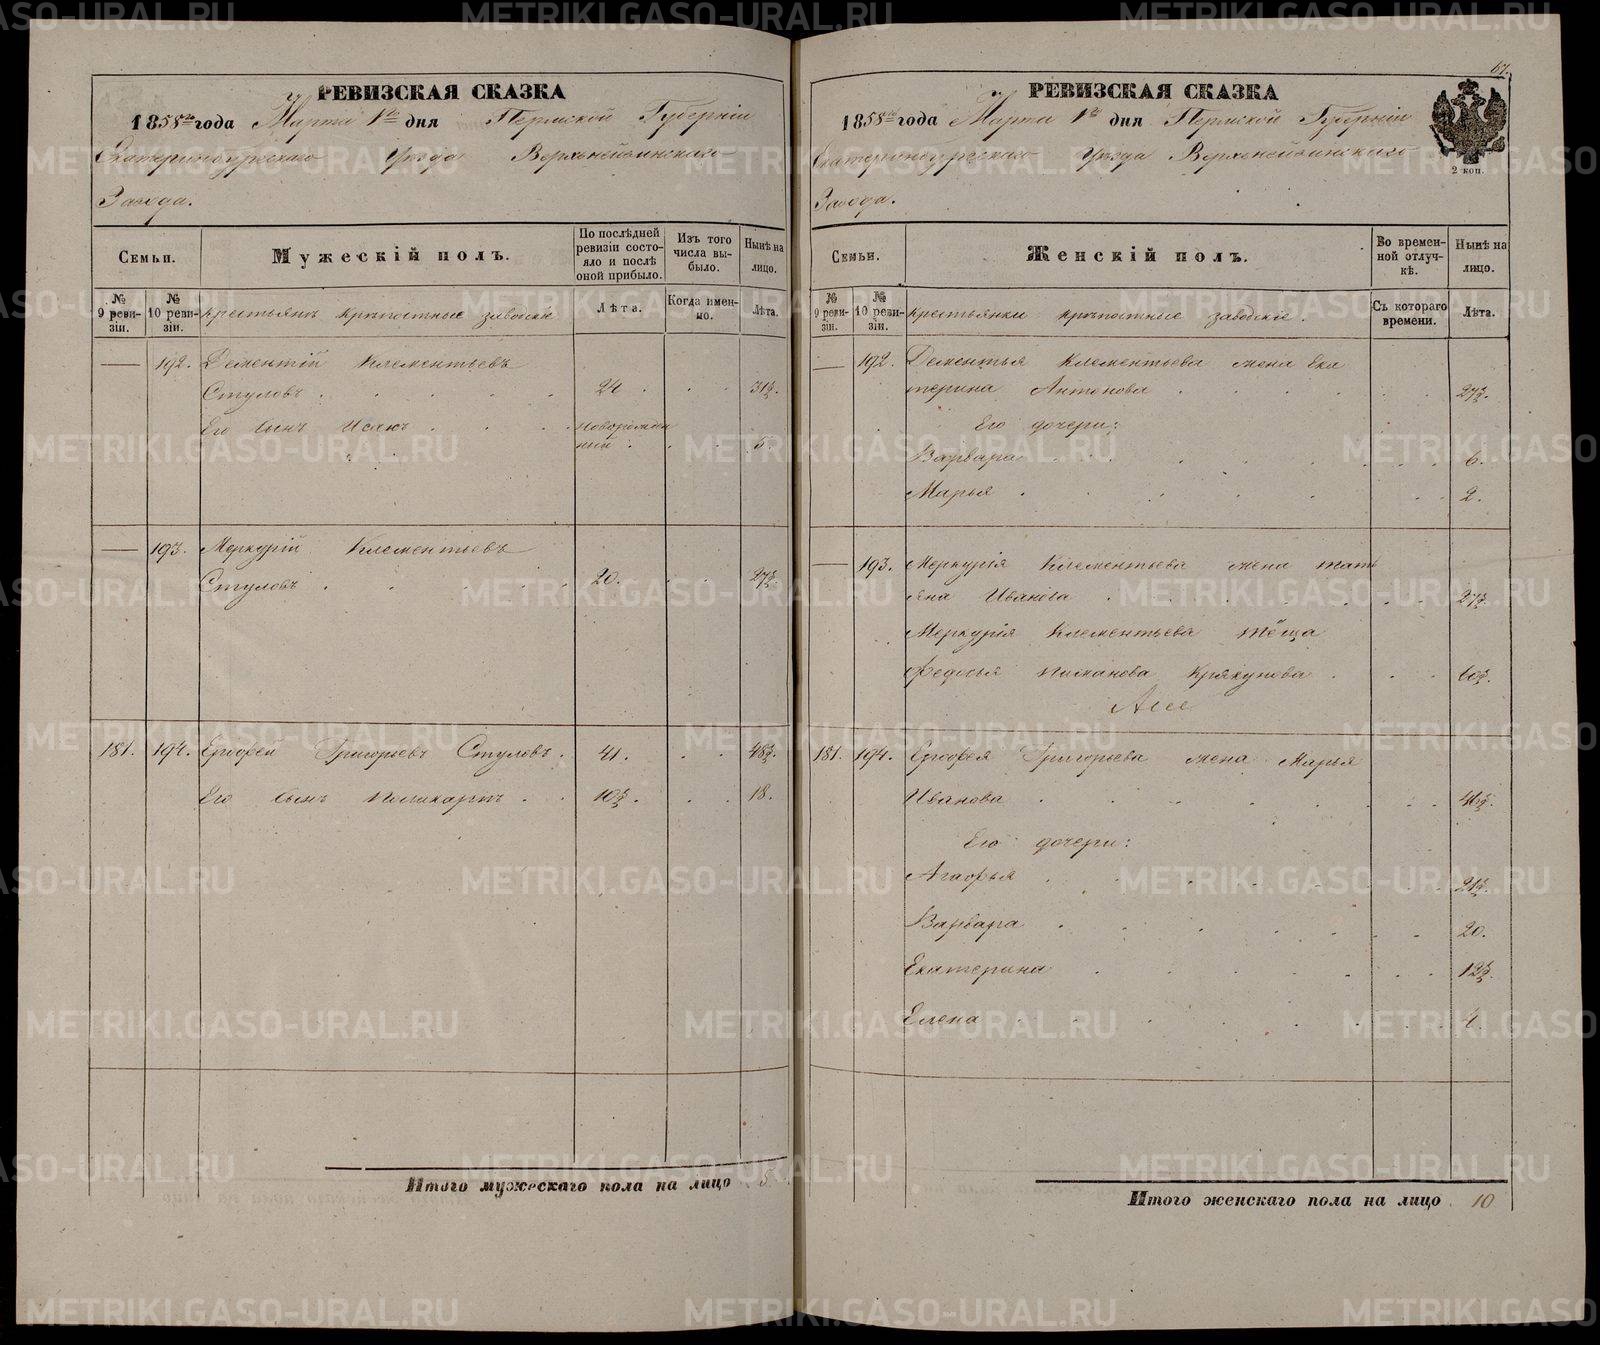 РЕВИЗСКАЯ СКАЗКА
1858го года Марта 1го дня Пермской Губерніи
Екатеринбургскаго Уѣзда Верхънейвинскаго
Завода.
Семьи.
Мужескій полъ.
По послѣдней ревизіи состояло и послѣ оной прибыло.
Изъ того числа выбыло.
Нынѣ на лицо.
№ 9 ревизіи.
№ 10 ревизіи.
крестьянъ крѣпостные заводскіе
Лѣта.
Когда именно.
Лѣта.
192. Дементій Клементьевъ
Стуловъ 24 31½.
Его сынъ Исакъ Новорожден
ный 5
193. Меркурій Клементьевъ
Стуловъ 20. 27½.
181. 194. Ерофей Григорьевъ Стуловъ 41. 48½.
Его сынъ Поликарпъ 10½. 18.
Итого мужескаго пола на лицо 5.
67.
РЕВИЗСКАЯ СКАЗКА
1858го года Марта 1го дня Пермской Губерніи
Екатеринбургскаго Уѣзда Верхънейвинскаго
Завода.
2 коп.
Семьи.
Женскій полъ.
Во временной отлучкѣ.
Нынѣ на лицо.
№ 9 ревизіи.
№ 10 ревизіи.
крестьянки крѣпостные заводскіе.
Съ котораго времени.
Лѣта.
192. Дементья Клементьева жена Ека
терина Антонова 27½.
Его дочери:
Варвара 6.
Марья 2.
193. Меркурія Клементьева жена Тать
яна Иванова 27½.
Меркурія Клементьева тёща
Федосья Кряхунова 60½.
181. 194. Ерофея Григорьева жена Марья
Иванова 46½.
Его дочери:
Агафья 21½.
Варвара 20.
Екатерина 12½.
Елена 4.
Итого женскаго пола на лицо 10
METRIKI.GASO-URAL.RU